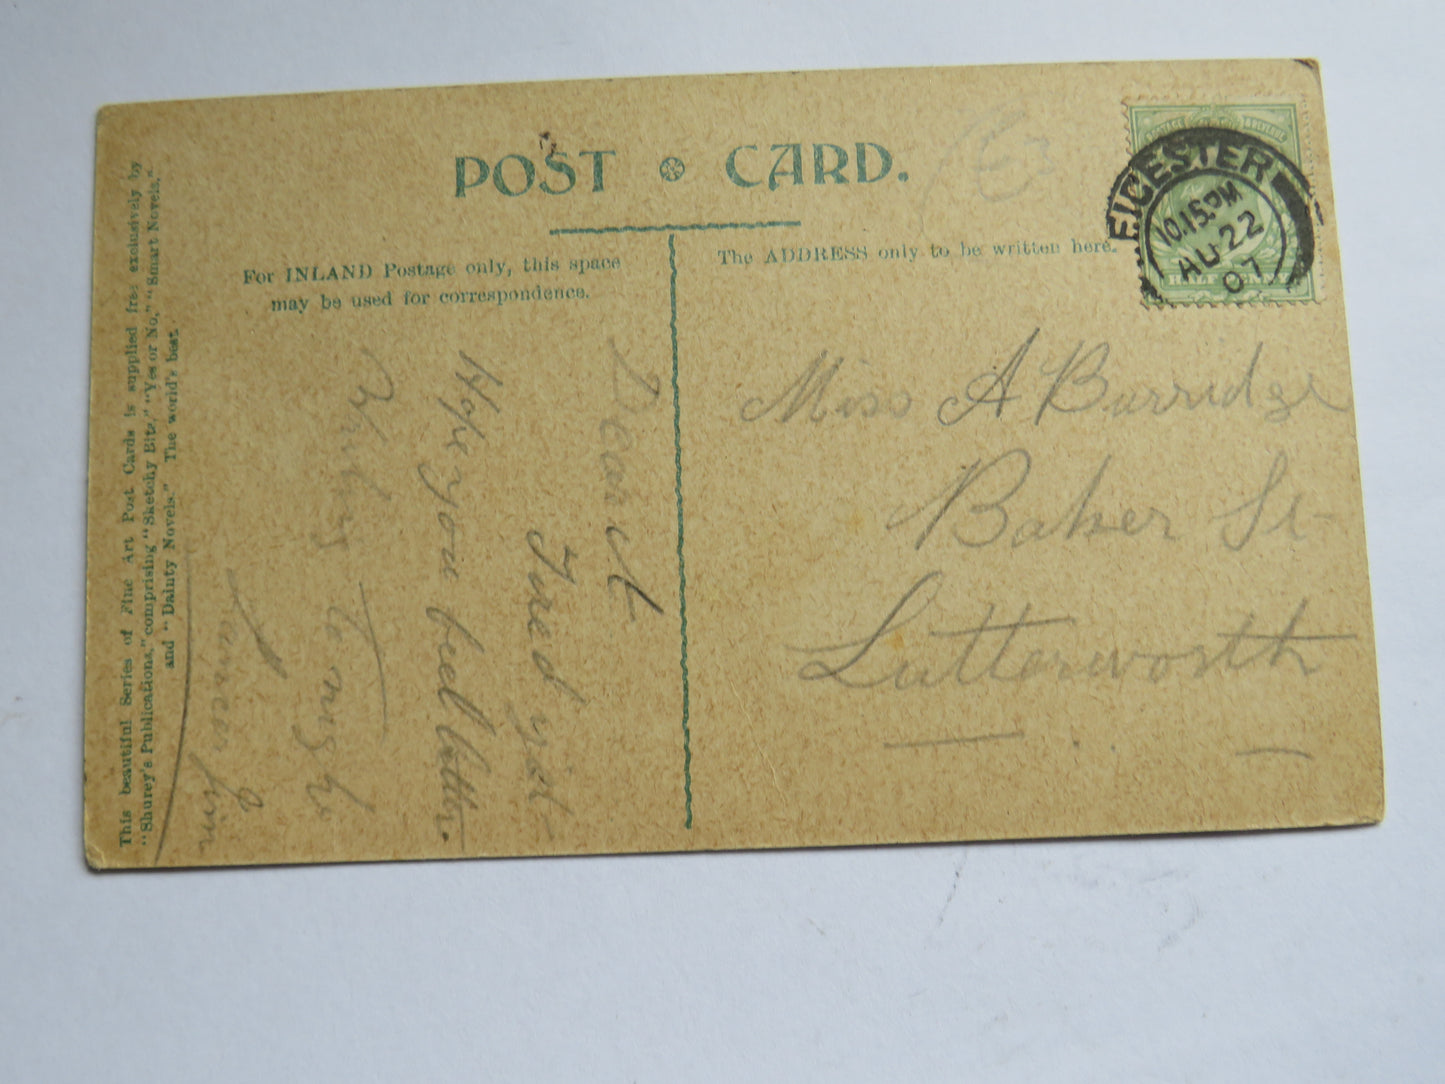 POST CARD.
For INLAND Postage only, this space
may be used for correspondence.
The ADDRESS only to be written here.
LEICESTER
10.15 PM
AU 22
07
POSTAGE & REVENUE
HALF PENNY
Miss A Burridge
Baker St
Lutterworth
Dear A
Hope you feel better.
This beautiful Series of Fine Art Post Cards is supplied free exclusively by
"Shurey's Publications," comprising "Sketchy Bits," "Yes or No," "Smart Novels,"
and "Dainty Novels." The world's best.